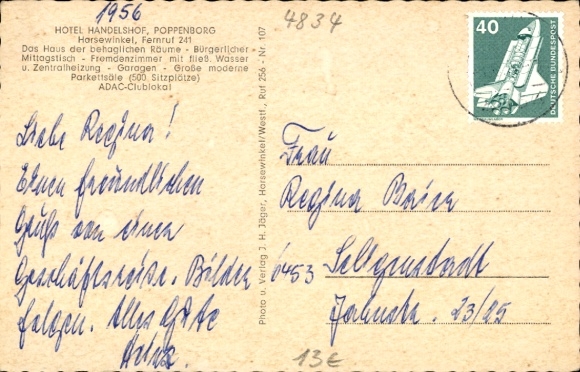 1956
4834
HOTEL HANDELSHOF, POPPENBORG
Harsewinkel, Fernruf 241
Das Haus der behaglichen Räume - Bürgerlicher
Mittagstisch - Fremdenzimmer mit fließ. Wasser
u. Zentralheizung - Garagen - Große moderne
Parkettsäle (500 Sitzplätze)
ADAC-Clublokal
Liebe Regina!
Einen freundlichen
Gruß von einer
Geschäftsreise. Bilder
folgen. Alles Gute
Heinz.
Photo u. Verlag J. H. Jäger, Harsewinkel/Westf., Ruf 256 - Nr. 107
40
DEUTSCHE BUNDESPOST
Frau
Regina
6453 Seligenstadt
Jahnstr. 23/25
13€